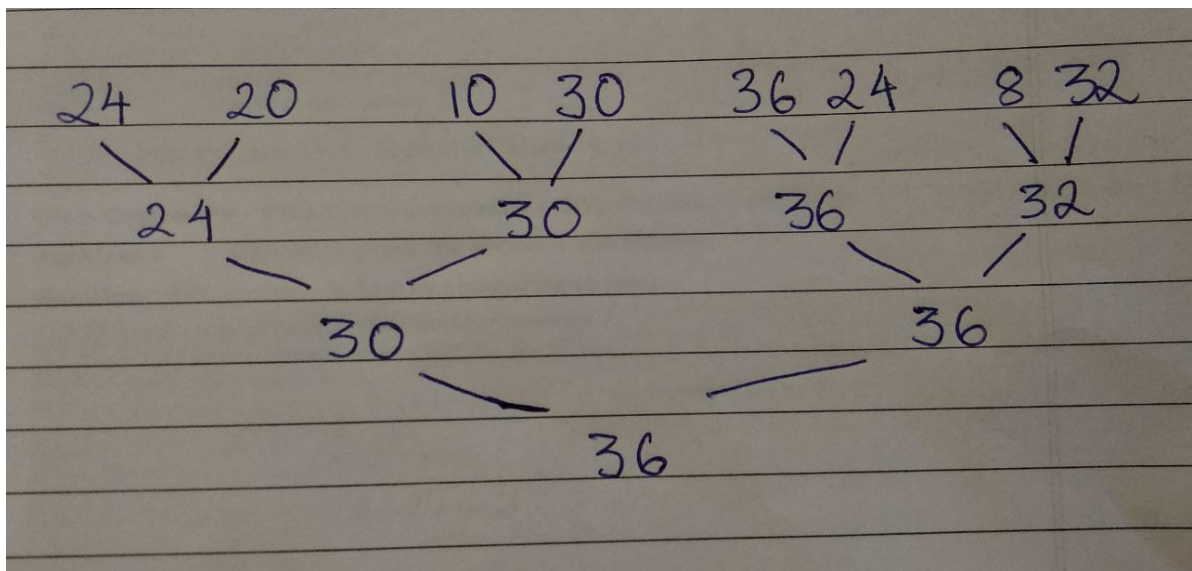 24 20 10 30 36 24 8 32
24 30 36 32
30 36
36